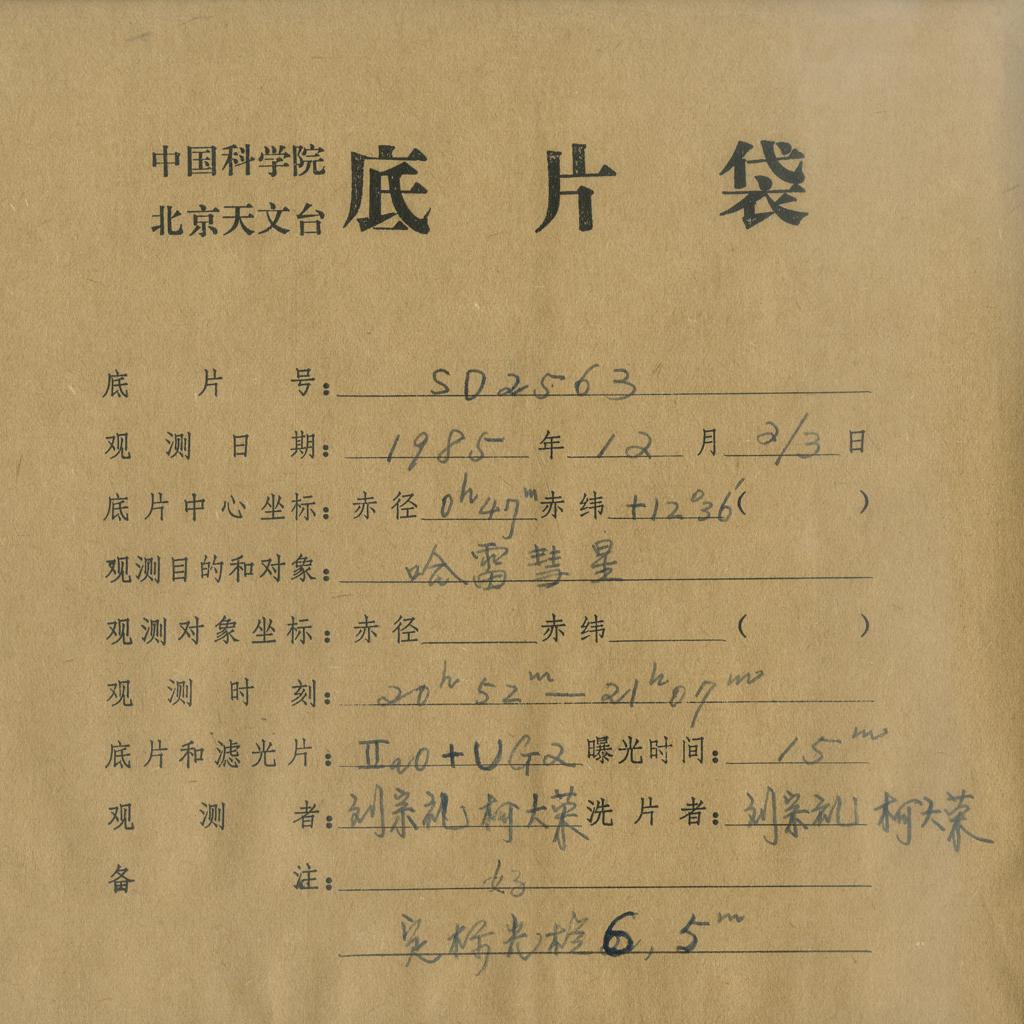 中国科学院
北京天文台
底片袋
底片号：SD2563
观测日期：1985年12月2/3日
底片中心坐标：赤径0h47m赤纬+12°36′（ ）
观测目的和对象：哈雷彗星
观测对象坐标：赤径 赤纬 （ ）
观测时刻：20h52m—21h07m
底片和滤光片：IIaO+UG2曝光时间：15m
观测者：刘宗礼 柯大荣洗片者：刘宗礼 柯大荣
备注：好
定标光楔6，5m